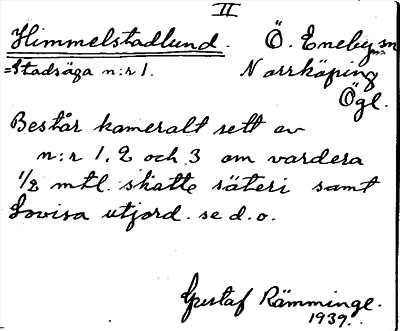 II
Himmelstadlund. Ö. Eneby sn
=Stadsäga n:r 1. Norrköping
Ögl.
Består kameralt sett av
n:r 1, 2 och 3 om vardera
1/2 mtl. skatte säteri samt
Lovisa utjord. se d.o.
Gustaf Rämminge.
1939.